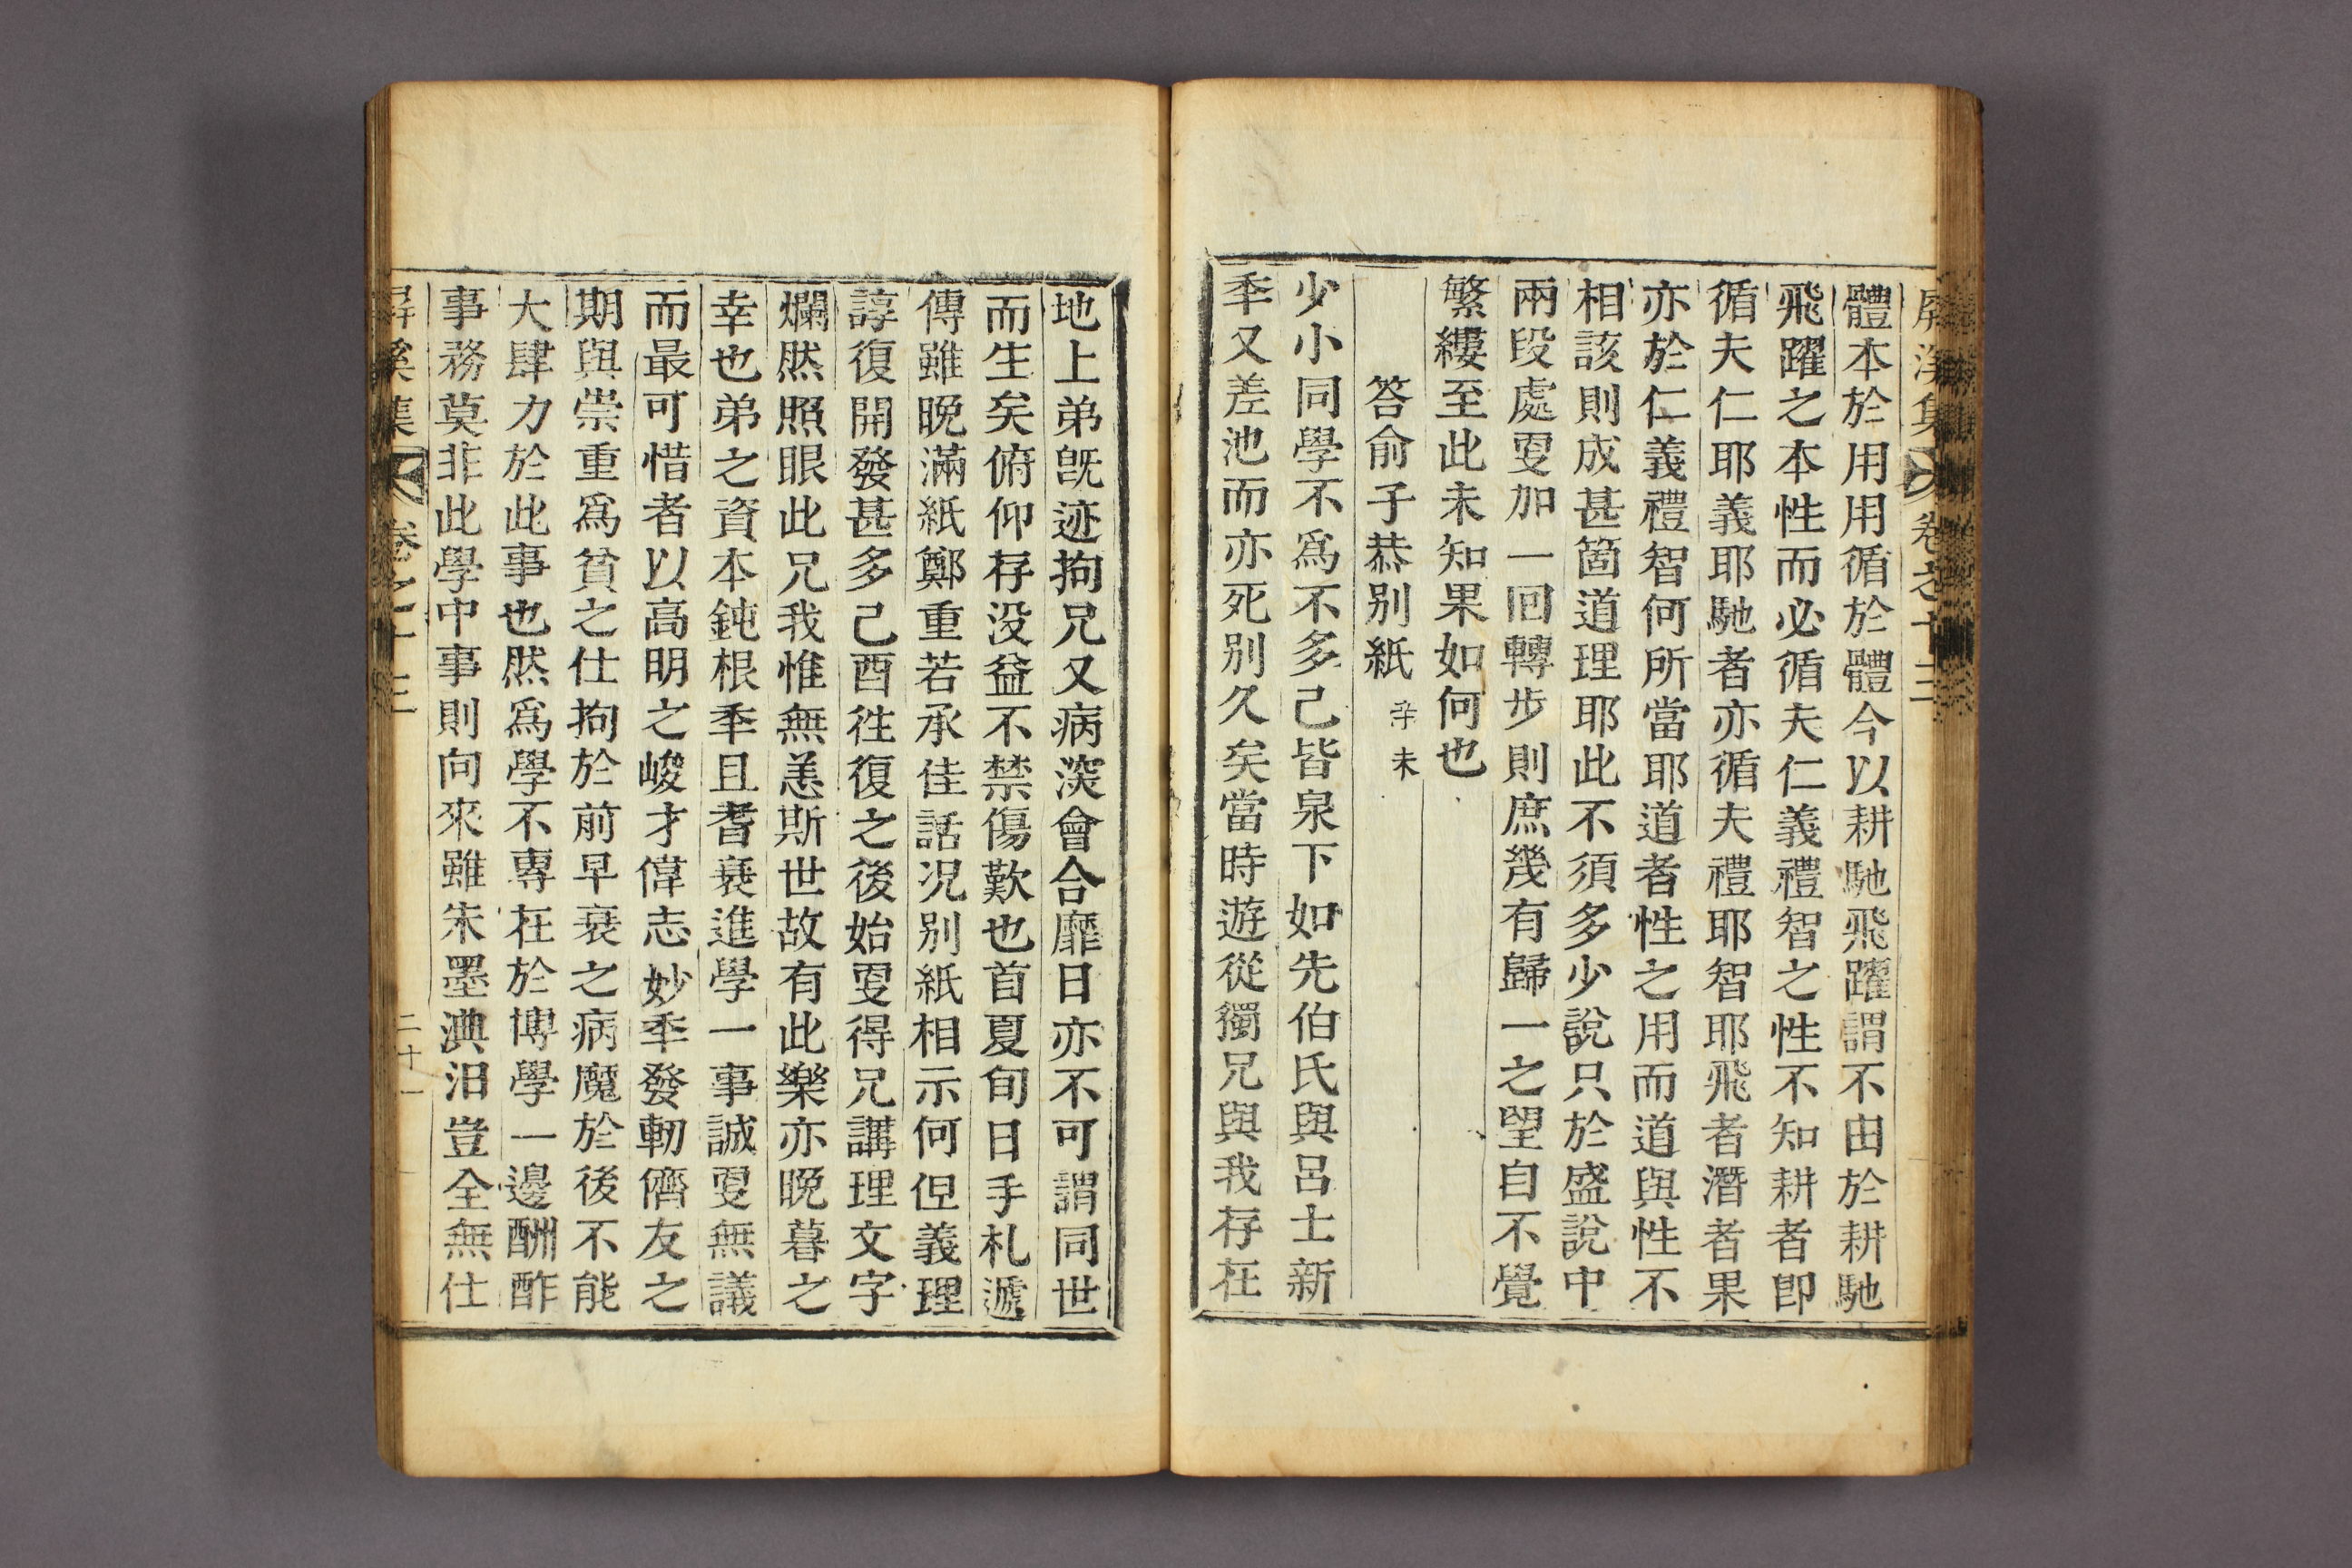 屛溪集 卷之十三
體本於用用循於體今以耕馳飛躍謂不由於耕馳
飛躍之本性而必循夫仁義禮智之性不知耕者卽
循夫仁耶義耶馳者亦循夫禮耶智耶飛者潛者果
亦於仁義禮智何所當耶道者性之用而道與性不
相該則成甚箇道理耶此不須多少說只於盛說中
兩段處更加一回轉步則庶幾有歸一之望自不覺
繁縷至此未知果如何也
答俞子恭別紙 辛未
少小同學不爲不多己皆泉下如先伯氏與呂士新
秊又差池而亦死別久矣當時遊從獨兄與我存在
地上弟旣迹拘兄又病深會合靡日亦不可謂同世
而生矣俯仰存沒益不禁傷歎也首夏旬日手札遞
傳雖晩滿紙鄭重若承佳話况別紙相示何但義理
諄復開發甚多己酉徃復之後始更得兄講理文字
爛然照眼此兄我惟無恙斯世故有此樂亦晩暮之
幸也弟之資本鈍根秊且耆衰進學一事誠更無議
而最可惜者以高明之峻才偉志妙秊發軔儕友之
期與崇重爲貧之仕拘於前早衰之病魔於後不能
大肆力於此事也然爲學不專在於博學一邊酬酢
事務莫非此學中事則向來雖朱墨淟汨豈全無仕
屛溪集 卷之十三 二十一